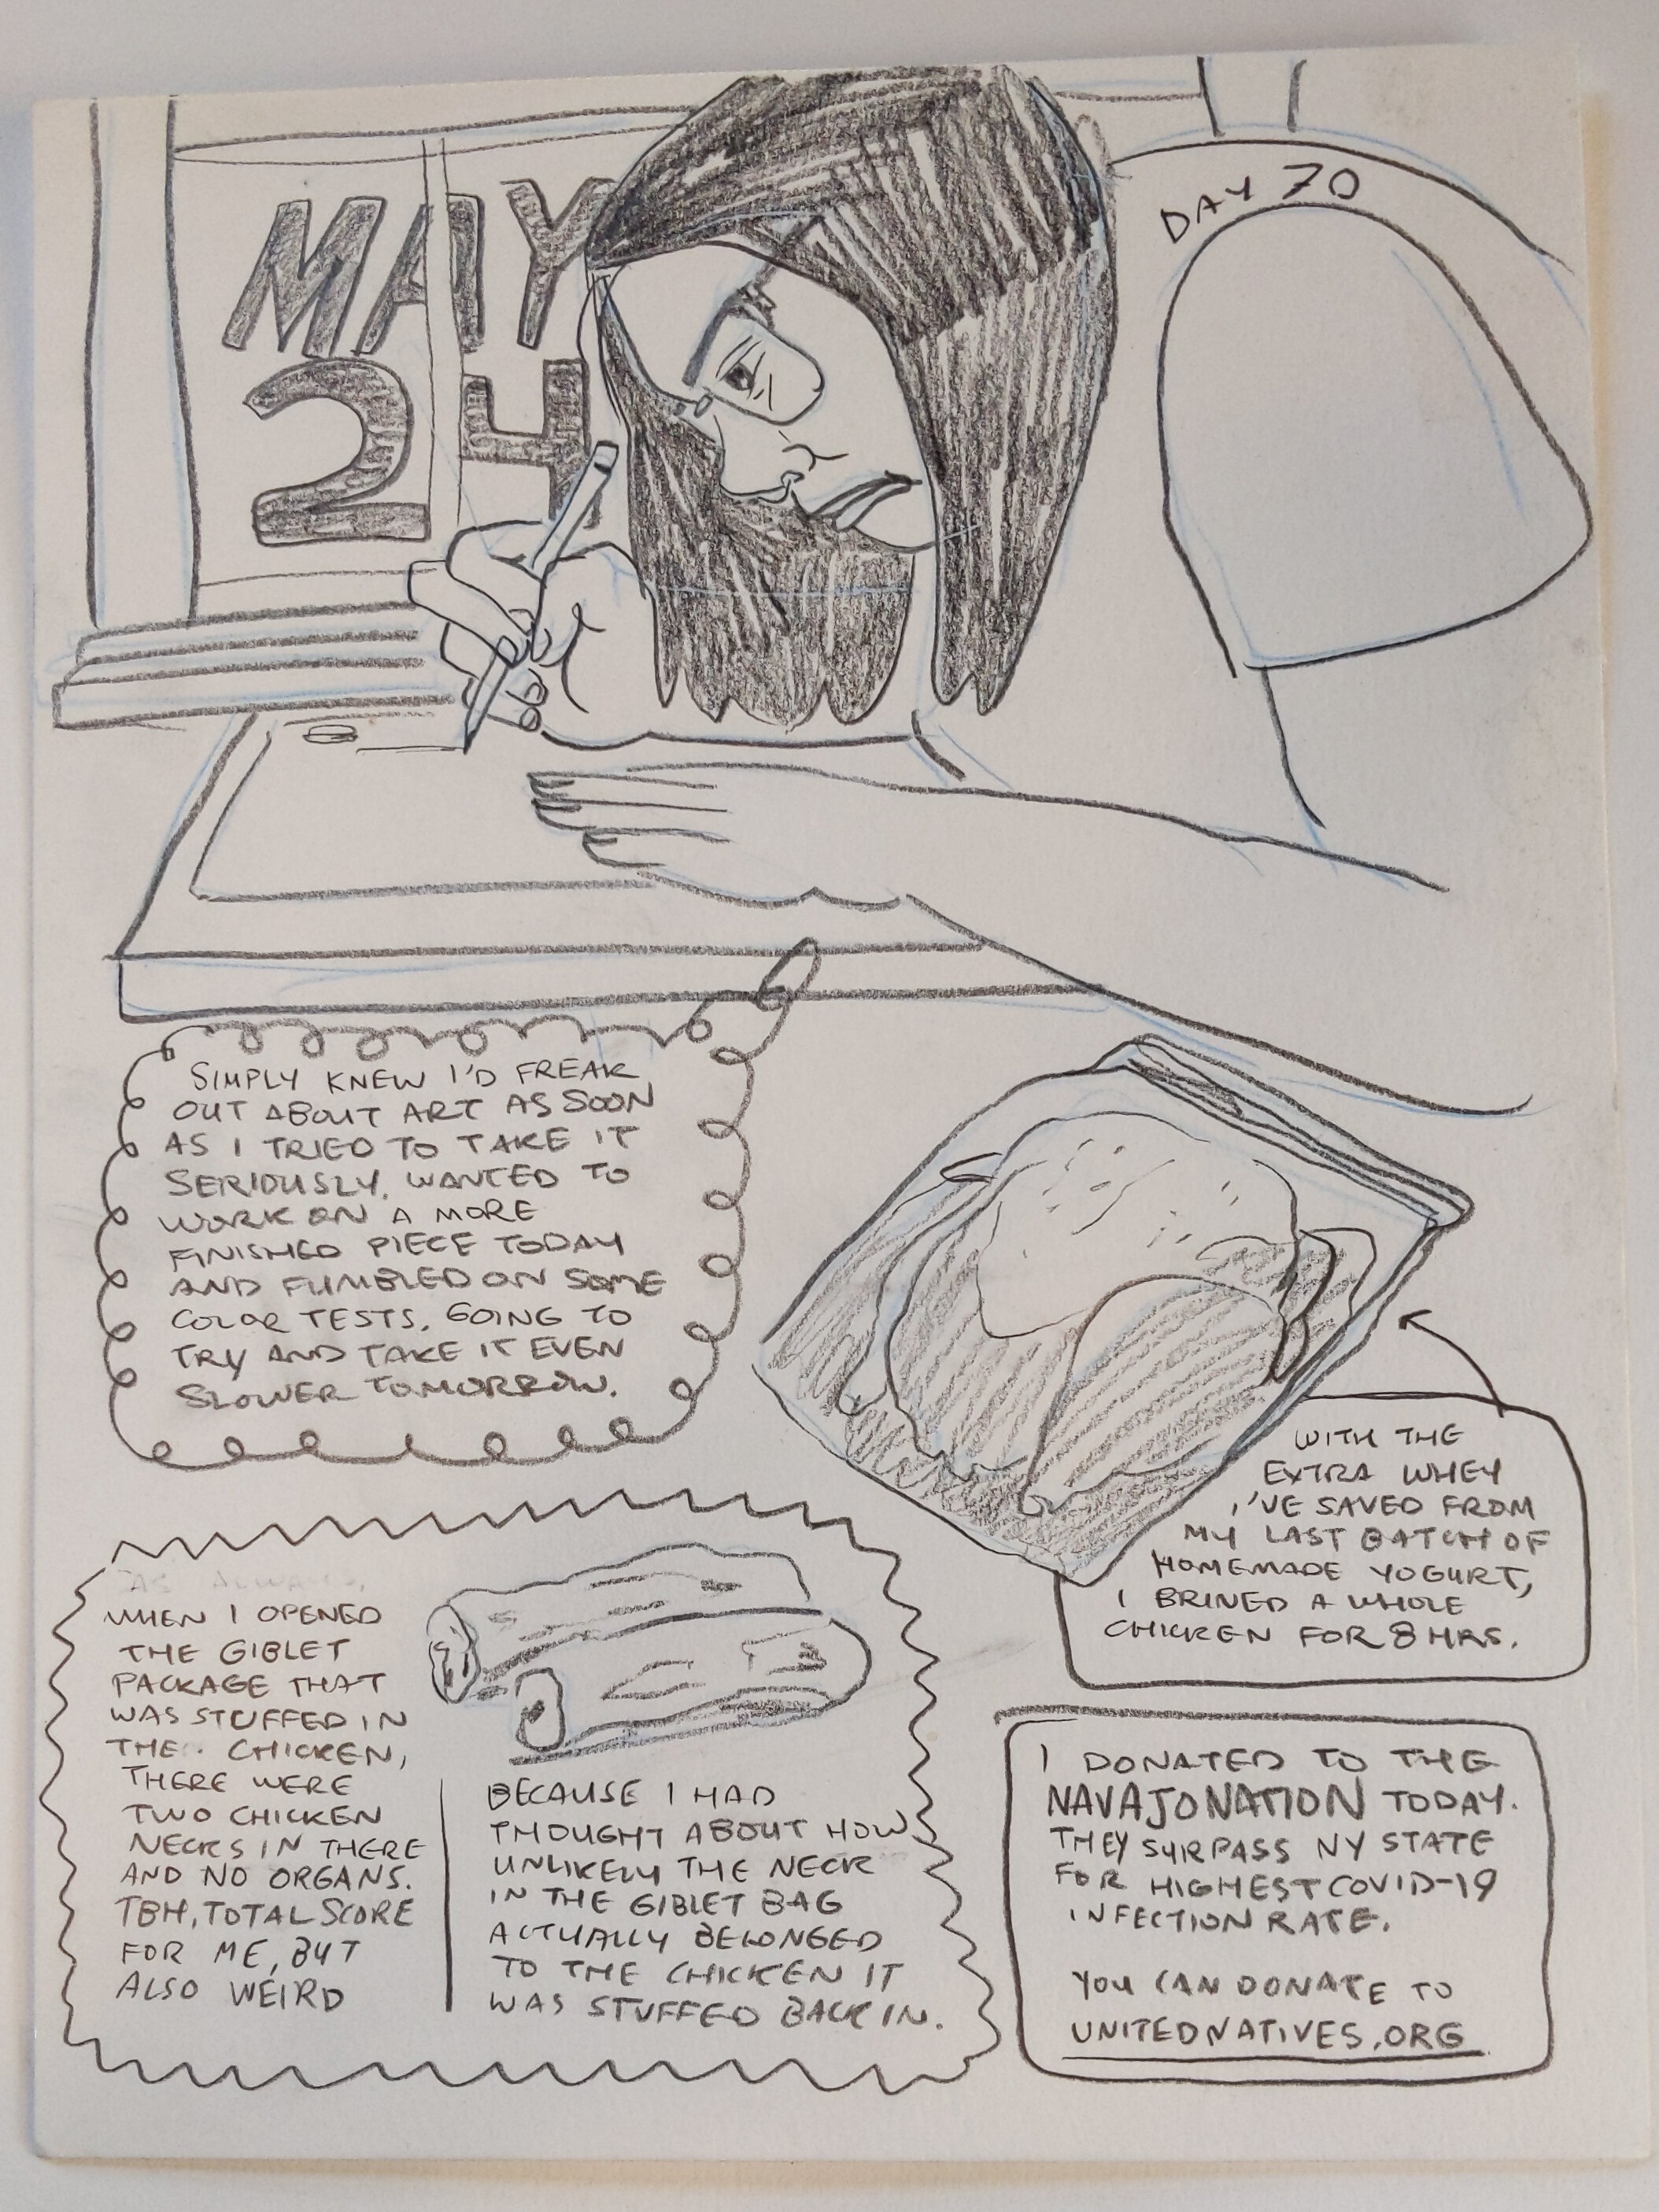 MAY
24
DAY 70
SIMPLY KNEW I'D FREAK
OUT ABOUT ART AS SOON
AS I TRIED TO TAKE IT
SERIOUSLY. WANTED TO
WORK ON A MORE
FINISHED PIECE TODAY
AND FUMBLED ON SOME
COLOR TESTS. GOING TO
TRY AND TAKE IT EVEN
SLOWER TOMORROW.
WITH THE
EXTRA WHEY
I'VE SAVED FROM
MY LAST BATCH OF
HOMEMADE YOGURT,
I BRINED A WHOLE
CHICKEN FOR 8 HRS.
AS ALWAYS,
WHEN I OPENED
THE GIBLET
PACKAGE THAT
WAS STUFFED IN
THE CHICKEN,
THERE WERE
TWO CHICKEN
NECKS IN THERE
AND NO ORGANS.
TBH, TOTAL SCORE
FOR ME, BUT
ALSO WEIRD
BECAUSE I HAD
THOUGHT ABOUT HOW
UNLIKELY THE NECK
IN THE GIBLET BAG
ACTUALLY BELONGED
TO THE CHICKEN IT
WAS STUFFED BACK IN.
I DONATED TO THE
NAVAJO NATION TODAY.
THEY SURPASS NY STATE
FOR HIGHEST COVID-19
INFECTION RATE.
YOU CAN DONATE TO
UNITEDNATIVES.ORG